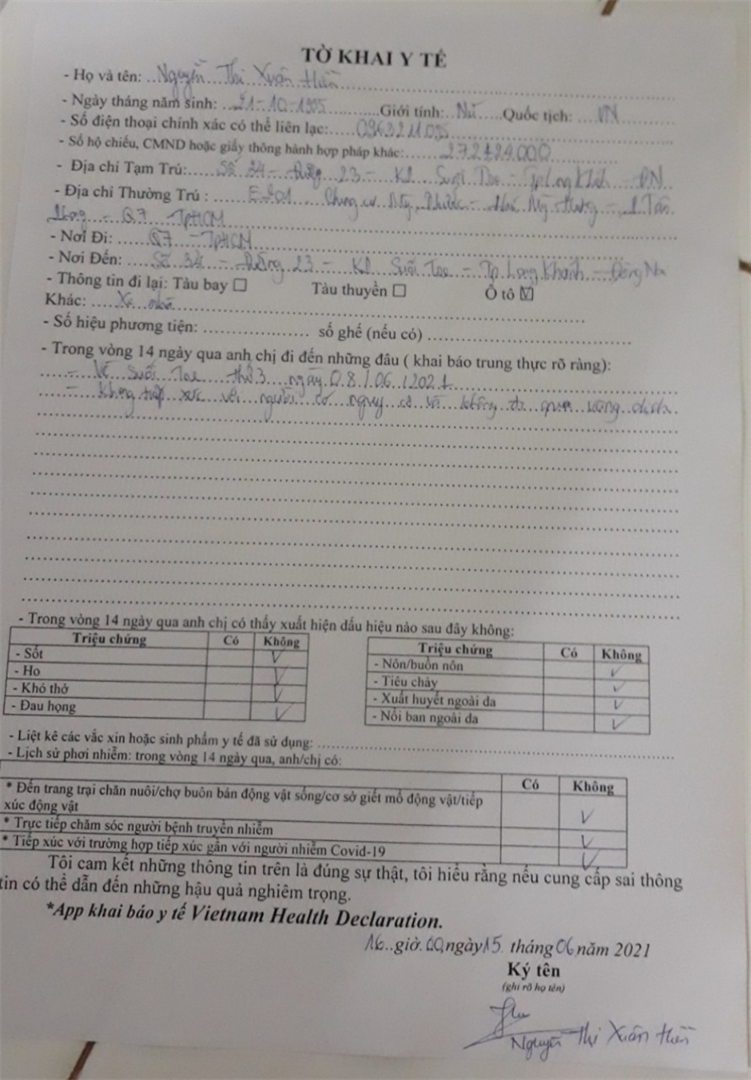 TỜ KHAI Y TẾ
- Họ và tên: Nguyễn Thị Xuân Hiền
- Ngày tháng năm sinh: 21-10-1995 Giới tính: Nữ Quốc tịch: VN
- Số điện thoại chính xác có thể liên lạc:
- Số hộ chiếu, CMND hoặc giấy thông hành hợp pháp khác: 272424000
- Địa chỉ Tạm Trú: Số 34 - Đường 23 - KP Suối Tre - Tp Long Khánh - ĐN
- Địa chỉ Thường Trú : Chung cư Mỹ Phước - Tân
- Q7 - TpHCM
- Nơi Đi: Q7 - TpHCM
- Nơi Đến: Số 34 - Đường 23 - KP Suối Tre - Tp. Long Khánh - Đồng Nai
- Thông tin đi lại: Tàu bay ☐ Tàu thuyền ☐ Ô tô ☑
Khác: Xe nhà
- Số hiệu phương tiện: số ghế (nếu có)
- Trong vòng 14 ngày qua anh chị đi đến những đâu ( khai báo trung thực rõ ràng):
- Về Suối Tre thứ 3 ngày 08/06/2021
- Không tiếp xúc với người có nguy cơ và không đi qua vùng dịch
- Trong vòng 14 ngày qua anh chị có thấy xuất hiện dấu hiệu nào sau đây không:
Triệu chứng Có Không
- Sốt ✓
- Ho ✓
- Khó thở ✓
- Đau họng ✓
Triệu chứng Có Không
- Nôn/buồn nôn ✓
- Tiêu chảy ✓
- Xuất huyết ngoài da ✓
- Nổi ban ngoài da ✓
- Liệt kê các vắc xin hoặc sinh phẩm y tế đã sử dụng:
- Lịch sử phơi nhiễm: trong vòng 14 ngày qua, anh/chị có:
Có Không
* Đến trang trại chăn nuôi/chợ buôn bán động vật sống/cơ sở giết mổ động vật/tiếp
xúc động vật ✓
* Trực tiếp chăm sóc người bệnh truyền nhiễm ✓
* Tiếp xúc với trường hợp tiếp xúc gần với người nhiễm Covid-19 ✓
Tôi cam kết những thông tin trên là đúng sự thật, tôi hiểu rằng nếu cung cấp sai thông
tin có thể dẫn đến những hậu quả nghiêm trọng.
*App khai báo y tế Vietnam Health Declaration.
16 giờ 00 ngày 15 tháng 06 năm 2021
Ký tên
(ghi rõ họ tên)
Nguyễn Thị Xuân Hiền